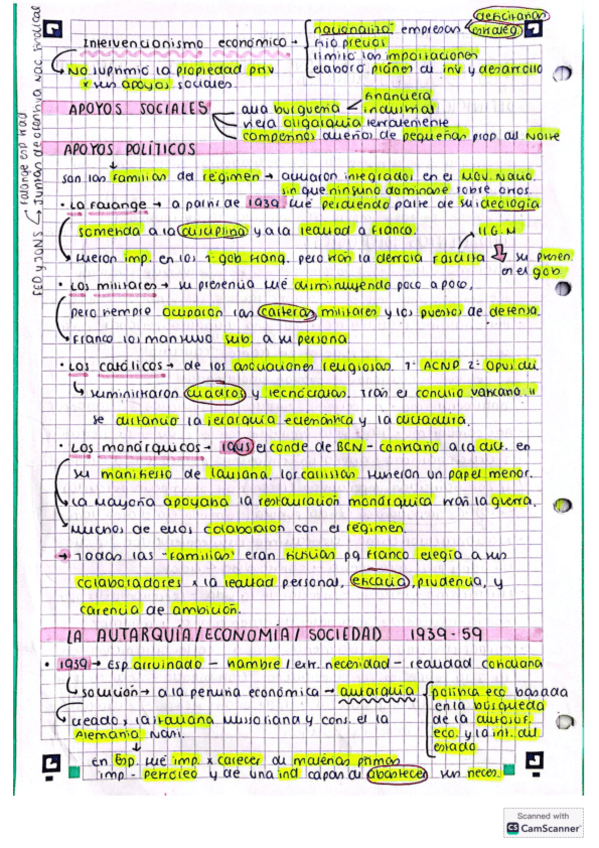 deficitarias
nacionalizó empresas estrateg.
Intervencionismo económico → fijó precios
limitó las importaciones
elaboró planes de inv y desarrollo
No suprimió la propiedad priv
x sus apoyos sociales.
APOYOS SOCIALES
alta burguesía financiera industrial
vieja oligarquía terrateniente
campesinos dueños de pequeñas prop del Norte
APOYOS POLÍTICOS
Falange esp trad
FED y JONS → Juntas de ofensiva nac sindical
son las familias del régimen → quedaron integrados en el Mov. Nacio.
sin que ninguno dominase sobre otros.
• La Falange → a partir de 1939 fué perdiendo parte de su ideología
sometida a la disciplina y a la lealtad a Franco.
II G.M
fueron imp. en los 1º gob. franq. pero tras la derrota fascista ↓ su presen. en el gob
• Los militares → su presencia fué disminuyendo poco a poco,
pero siempre ocuparon las carteras militares y los puestos de defensa.
Franco los mantuvo sub. a su persona
• Los católicos → de las asociaciones religiosas. 1º ACNP 2º Opus dei
suministraron cuadros y tecnócratas. Tras el concilio vaticano II
se distanció la jerarquía eclesiástica y la dictadura.
• Los monárquicos → 1945 el conde de BCN - contrario a la dict. en
su manifiesto de Lausana. los carlistas tuvieron un papel menor.
La mayoría apoyaba la restauración monárquica tras la guerra.
Muchos de ellos colaboraron con el régimen.
→ Todas las "familias" eran ficticias pq Franco elegía a sus
colaboradores x la lealtad personal, eficacia, prudencia, y
carencia de ambición.
LA AUTARQUÍA/ECONOMÍA/SOCIEDAD 1939-59
• 1939 → Esp. arruinado - hambre / extr. necesidad - realidad cotidiana
solución → a la penuria económica → autarquía
política eco basada
en la búsqueda
de la autosuf.
eco. y la int. del
estado
creado x la Italiana Mussoliana y cons. el la
Alemania Nazi.
en Esp. fué imp. x carecer de materias primas
imp - petróleo y de una ind capaz de abastecer sus neces.
Scanned with
CS CamScanner